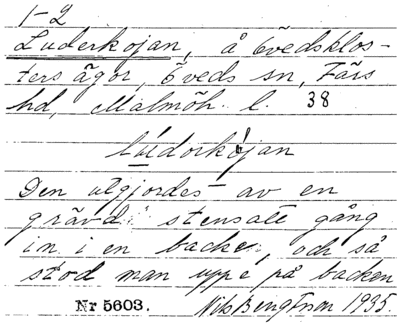 1-2
Luderkojan, å Övedsklos-
ters ägor, Öveds sn, Färs
hd, Malmöh. l. 38
luderkojan
Den utgjordes av en
grävd stensatt gång
in i en backe, och så
stod man uppe på backen
Nr 5603. Nils Bengtsson 1935.